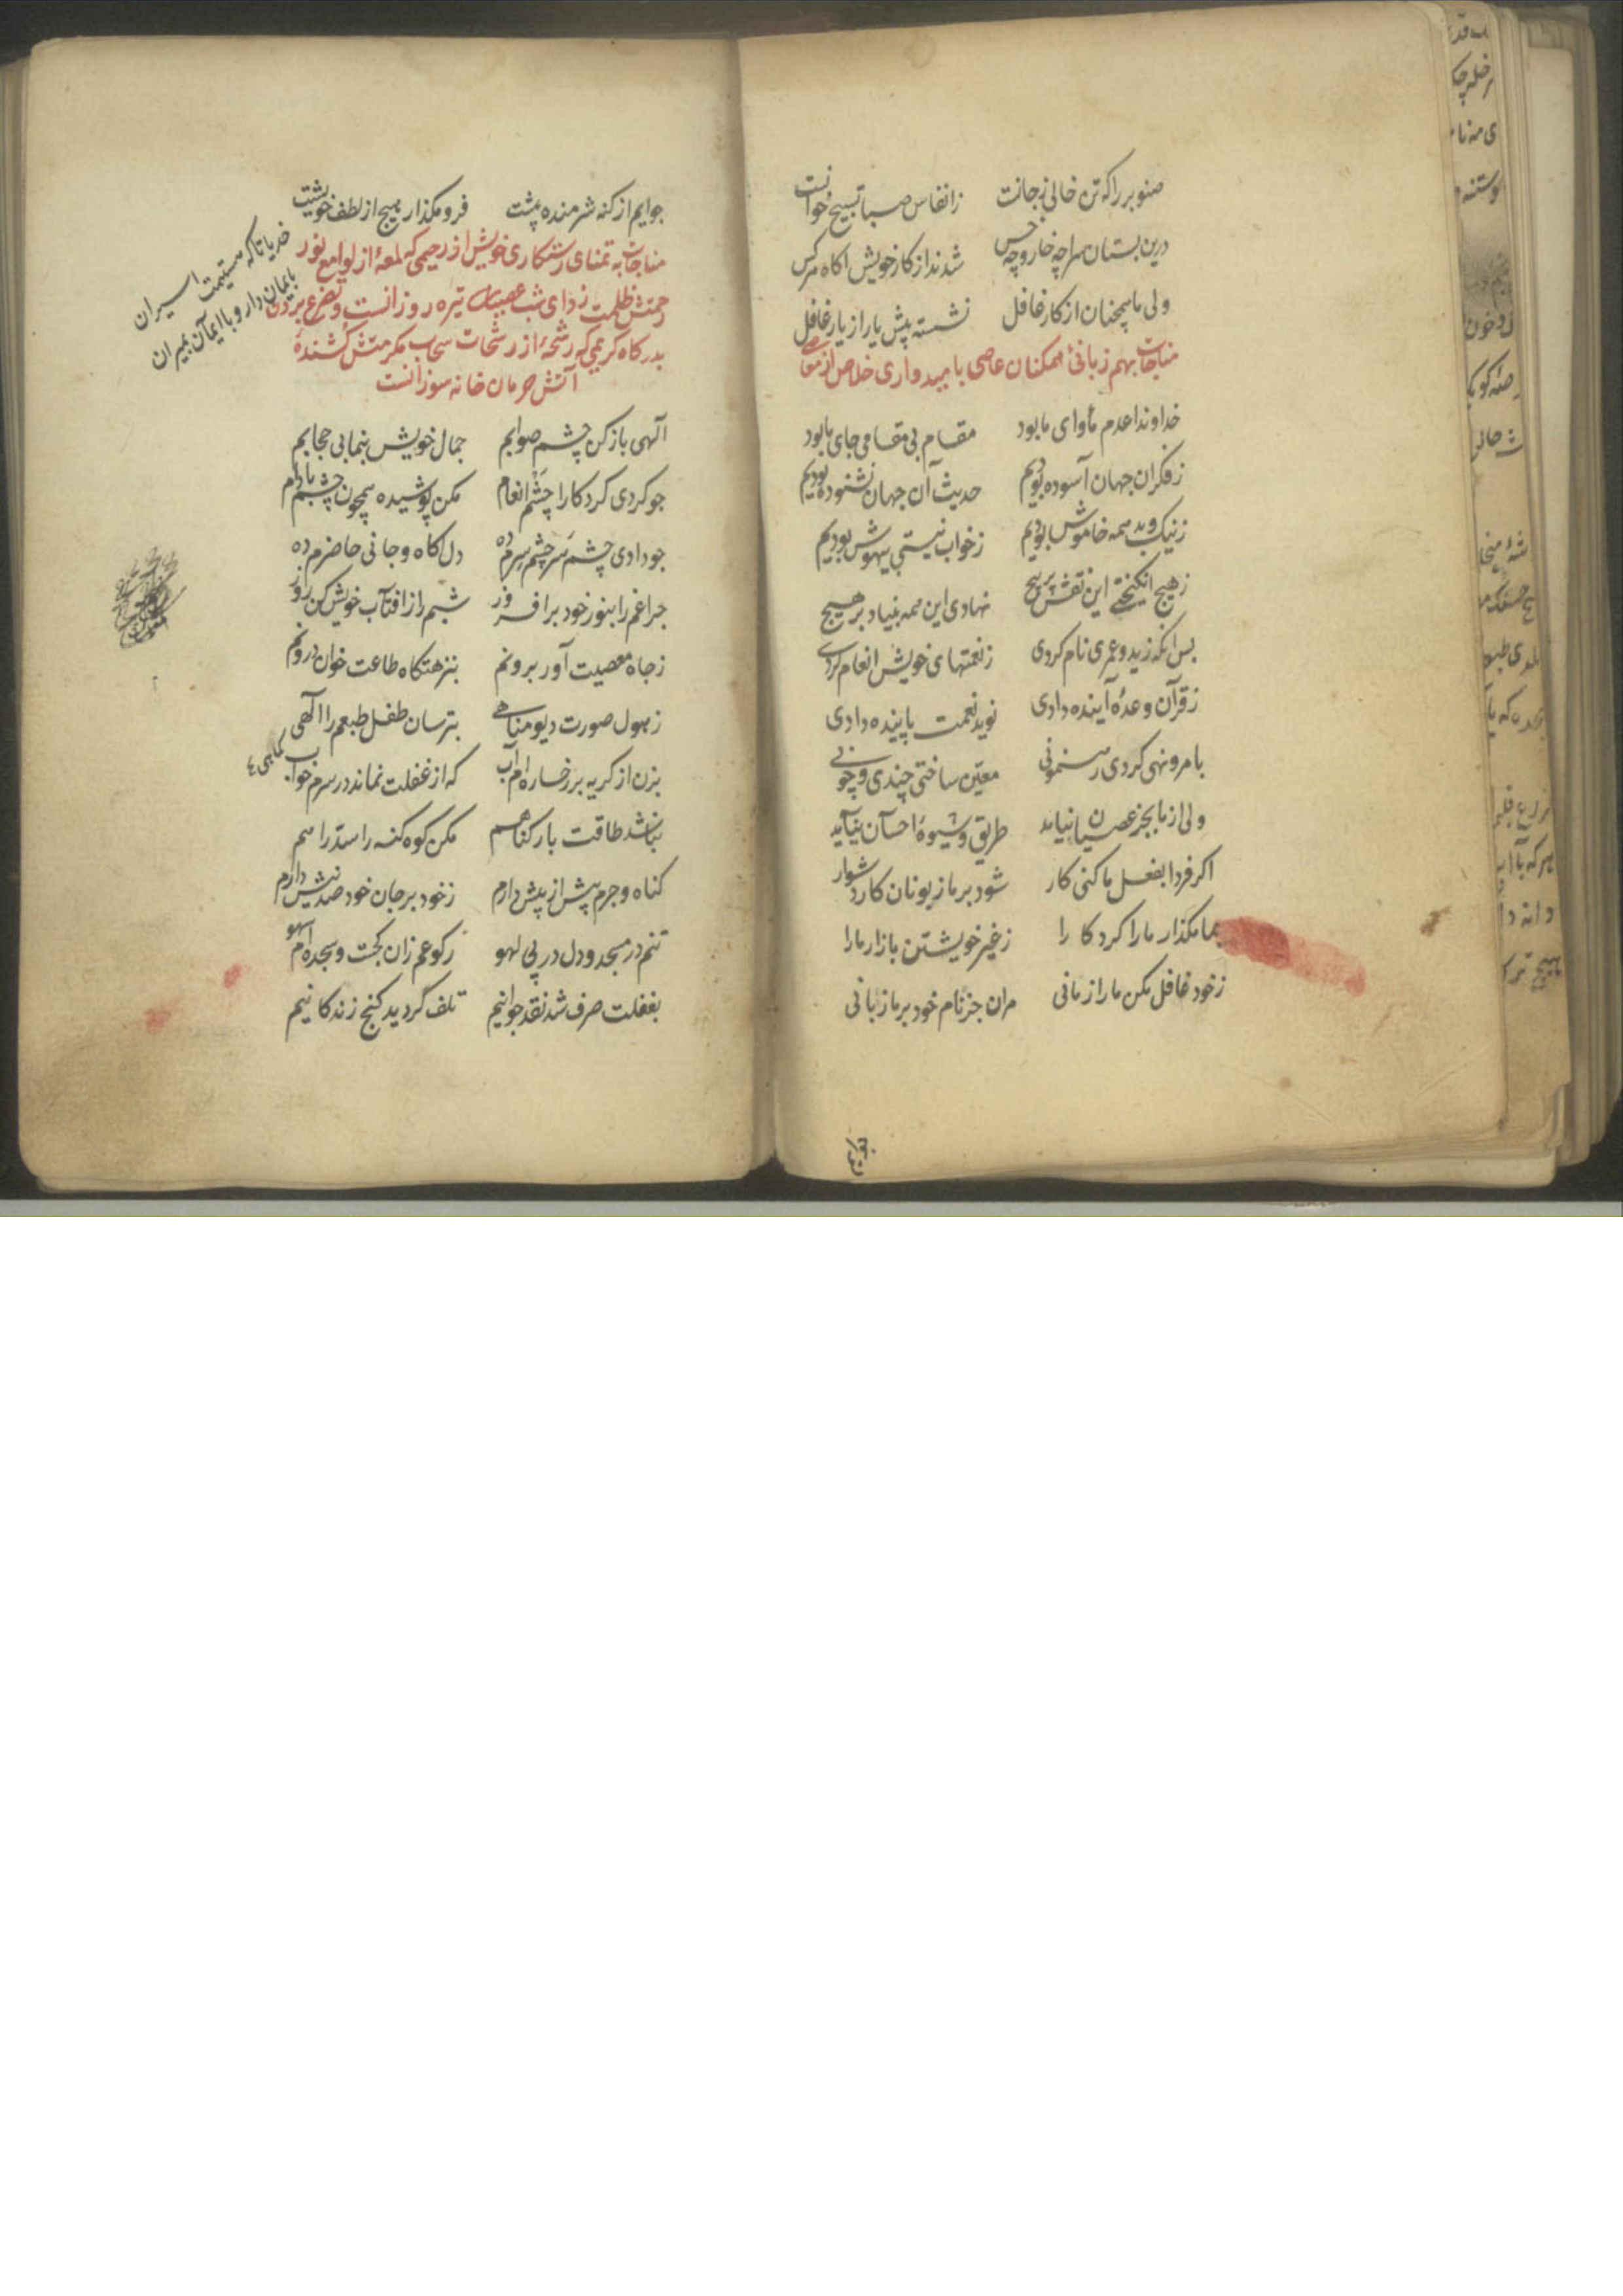 صنوبر را که تن خالی ز جانست زانفاس صبا تسبیح خوانست
درین بستان سرا چه خار و چه خس شدند از کار خویش اکاه هر کس
ولی ما همچنان از کار غافل نشسته پیش یار از یار غافل
مناجات بهم زبانی ممکنان عاصی بامیدواری خلاص از معاصی
خداوندا عدم مأوای ما بود مقام بی مقامی جای ما بود
ز فکر ان جهان آسوده بودیم حدیث آن جهان نشنوده بودیم
ز نیک و بد همه خاموش بودیم ز خواب نیستی بیهوش بودیم
ز هیچ انکیختی این نقش پر پیچ نهادی این همه بنیاد بر هیچ
پس انکه زید و عمری نام کردی ز نعمتهای خویش انعام کردی
ز قرآن وعدهٔ آینده دادی نوید نعمت پاینده دادی
بامر و نهی کردی رهنمونی معین ساختی چندی و چونی
ولی از ما بجز عصیان نیاید طریق و شیوهٔ احسان نیاید
اکر فردا بفعل ما کنی کار شود بر ما زبونان کار دشوار
بما مکذار ما را کردکارا ز غیر خویشتن باز ار ما را
ز خود غافل مکن ما را زمانی مران جز نام خود بر ما زبانی
جوایم از کنه شرمنده پیشت فرو مکذار هیچ از لطف خویشت
مناجات به تمنای رستکاری خویش از رحیمی که لمعهٔ از لوامع نور
رحمتش ظلمت زدای شب عصیان تیره روزانست و تضرع بردن
بدرکاه کریمی که رشحهٔ از رشحات سحاب مکرمتش کشندهٔ
آتش حرمان خانه سوزانست
خدایا تا که
اسیران
بایمان دار و با ایمان بمیران
آلهی باز کن چشم صوابم جمال خویش بنما بی حجابم
جو کردی کردکارا چشم انعام مکن پوشیده همچون چشم بادام
جو دادی چشم سر چشم سرم ده دل اکاه و جانی حاضرم ده
جراغم را بنور خود بر افروز شبم را ز افتاب خویش کن روز
ز جاه معصیت آور برونم بنزهتکاه طاعت خوان درونم
ز هول صورت دیو مناهی بترسان طفل طبعم را آکهی
کماهی
بزن از کریه بر رخساره ام آب که از غفلت نماند در سرم خواب
نباشد طاقت بار کناهم مکن کوه کنه را سد راهم
کناه و جرم بیش از پیش دارم ز خود بر جان خود صد نیش دارم
تنم در مسجد و دل در پی لهو رکوعم زان کجت و سجده ام سهو
بغفلت صرف شد نقد جوانیم تلف کردید کنج زندکانیم